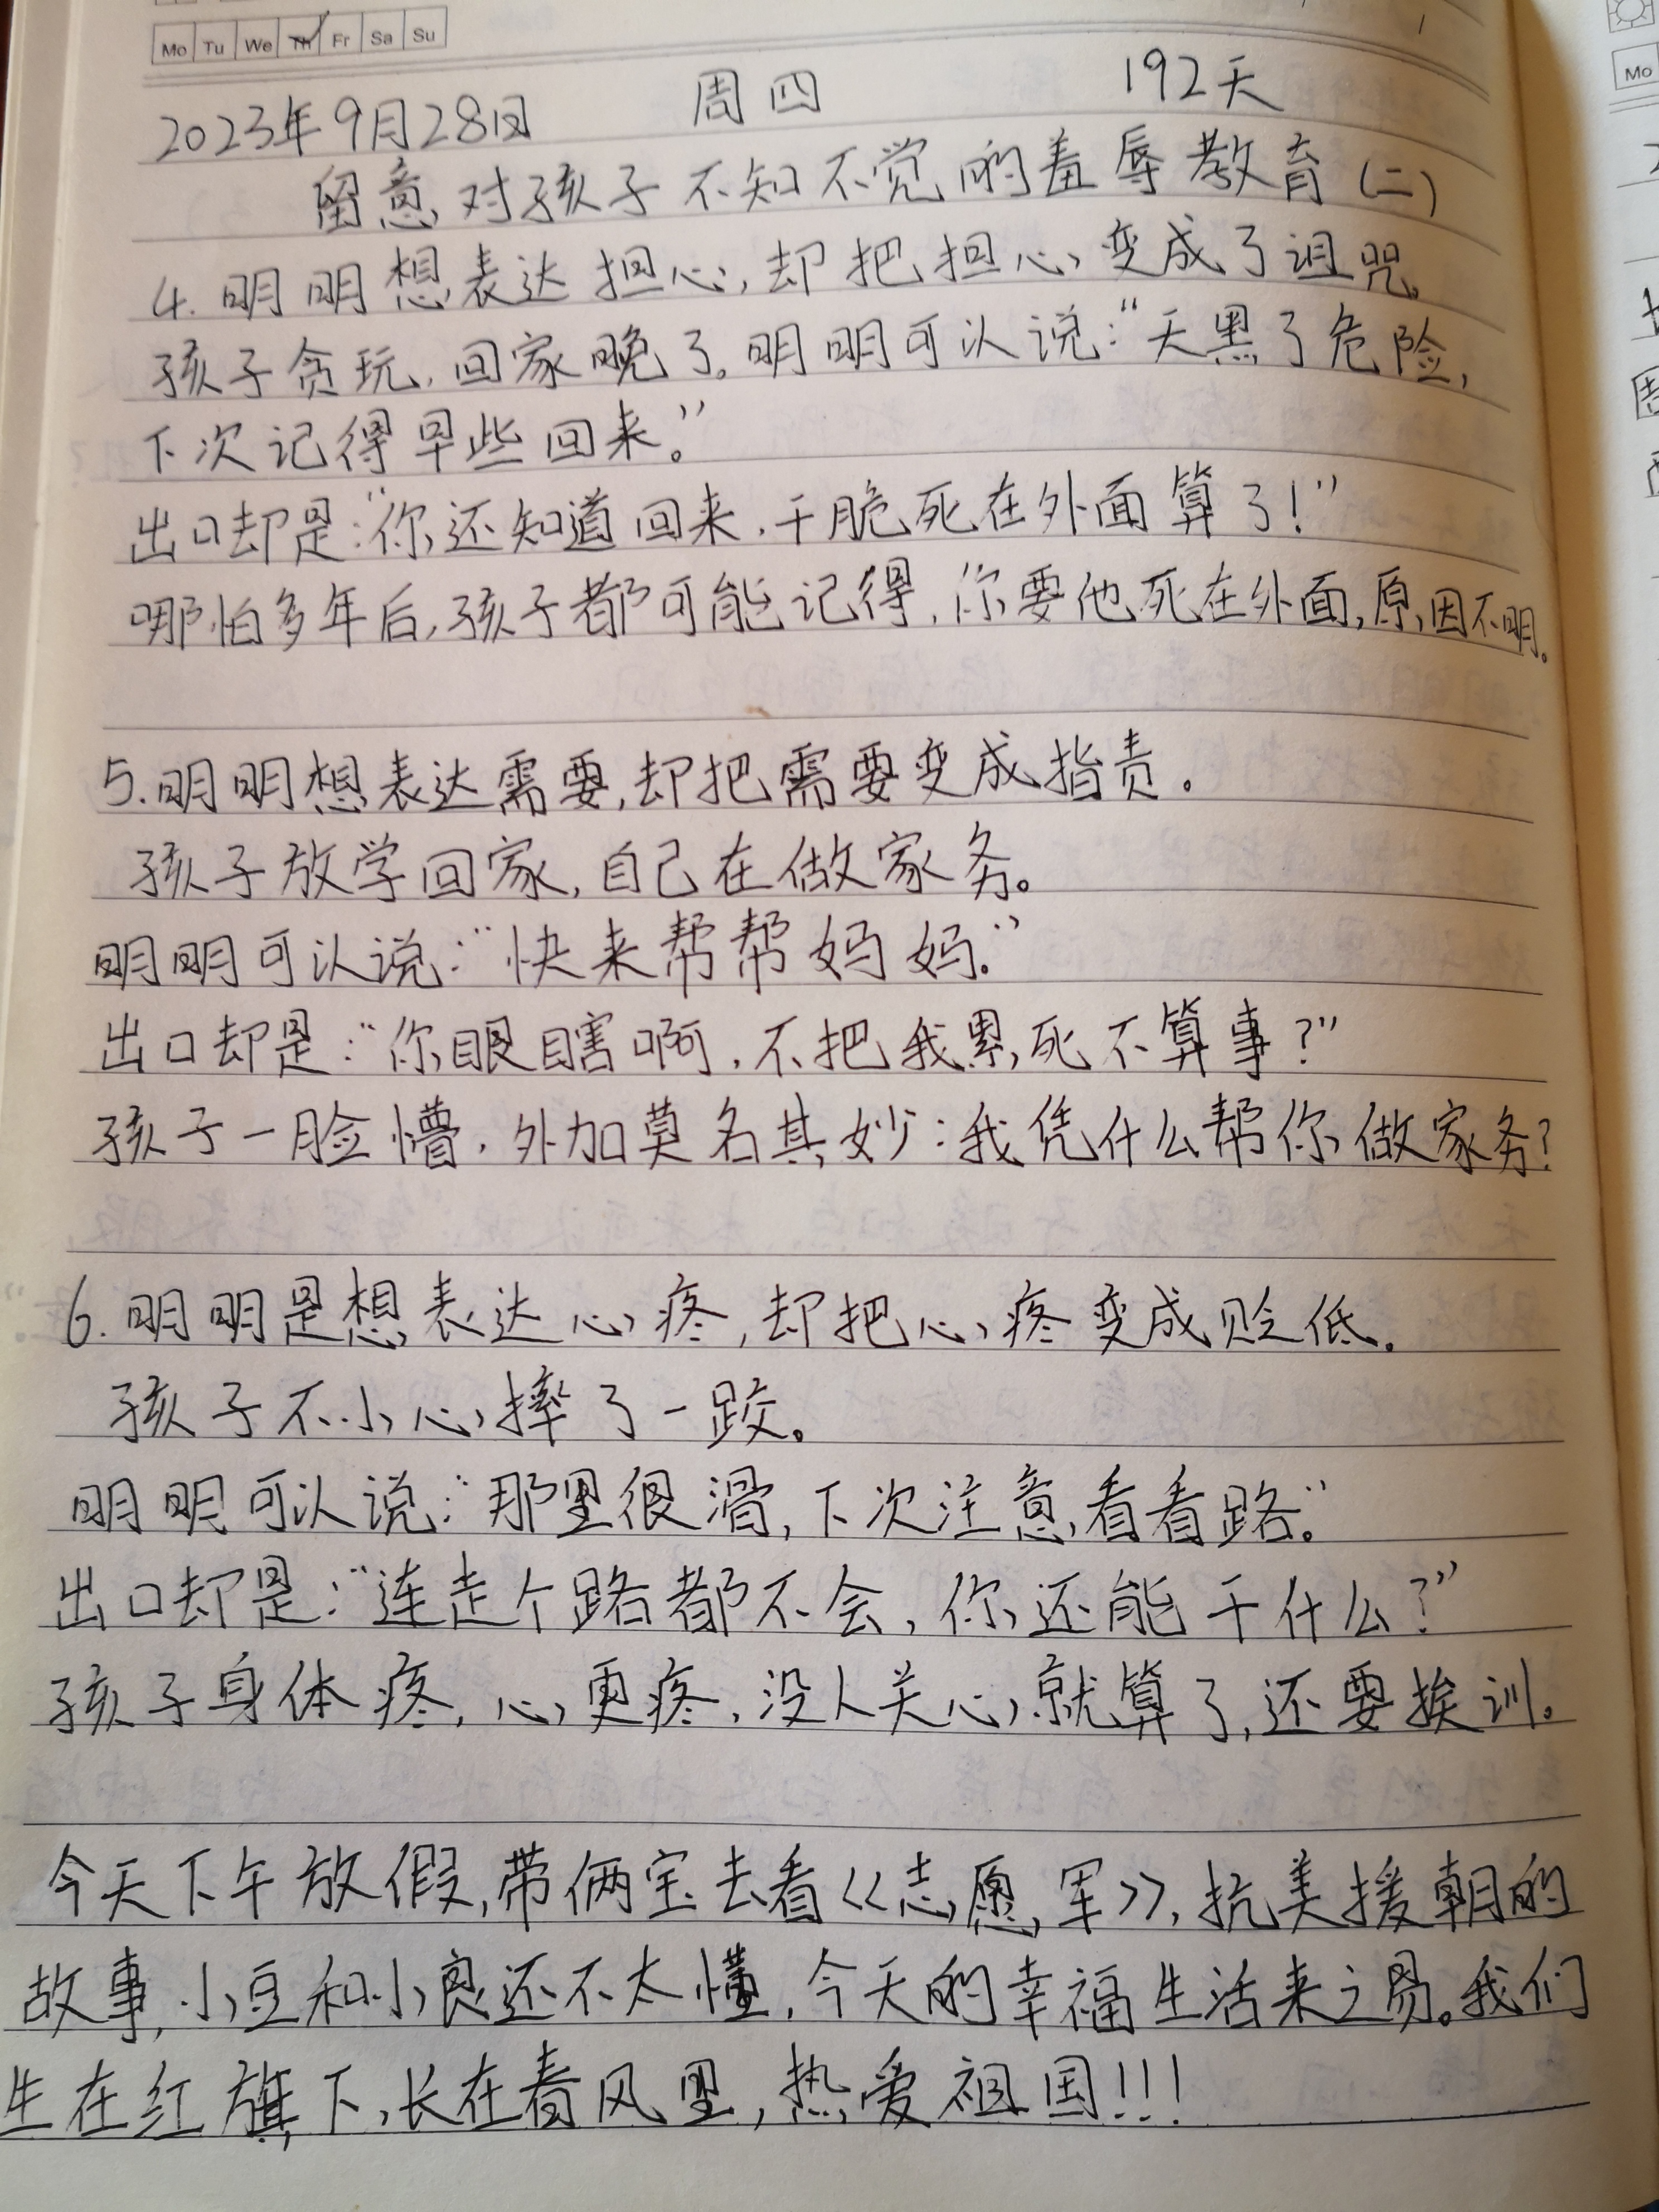 Mo Tu We Th Fr Sa Su
2023年9月28日 周四 192天
留意对孩子不知不觉的羞辱教育(二)
4.明明想表达担心,却把担心变成了诅咒。
孩子贪玩,回家晚了。明明可以说:“天黑了危险,
下次记得早些回来。”
出口却是:“你还知道回来,干脆死在外面算了!”
哪怕多年后,孩子都可能记得,你要他死在外面,原因不明。
5.明明想表达需要,却把需要变成指责。
孩子放学回家,自己在做家务。
明明可以说:“快来帮帮妈妈。”
出口却是:“你眼瞎啊,不把我累死不算事?”
孩子一脸懵,外加莫名其妙:我凭什么帮你做家务?
6.明明是想表达心疼,却把心疼变成贬低。
孩子不小心摔了一跤。
明明可以说:“那里很滑,下次注意看看路。”
出口却是:“连走个路都不会,你还能干什么?”
孩子身体疼,心更疼,没人关心就算了,还要挨训。
今天下午放假,带俩宝去看《志愿军》,抗美援朝的
故事,小豆和小良还不太懂,今天的幸福生活来之易。我们
生在红旗下,长在春风里,热爱祖国!!!
Mo
周